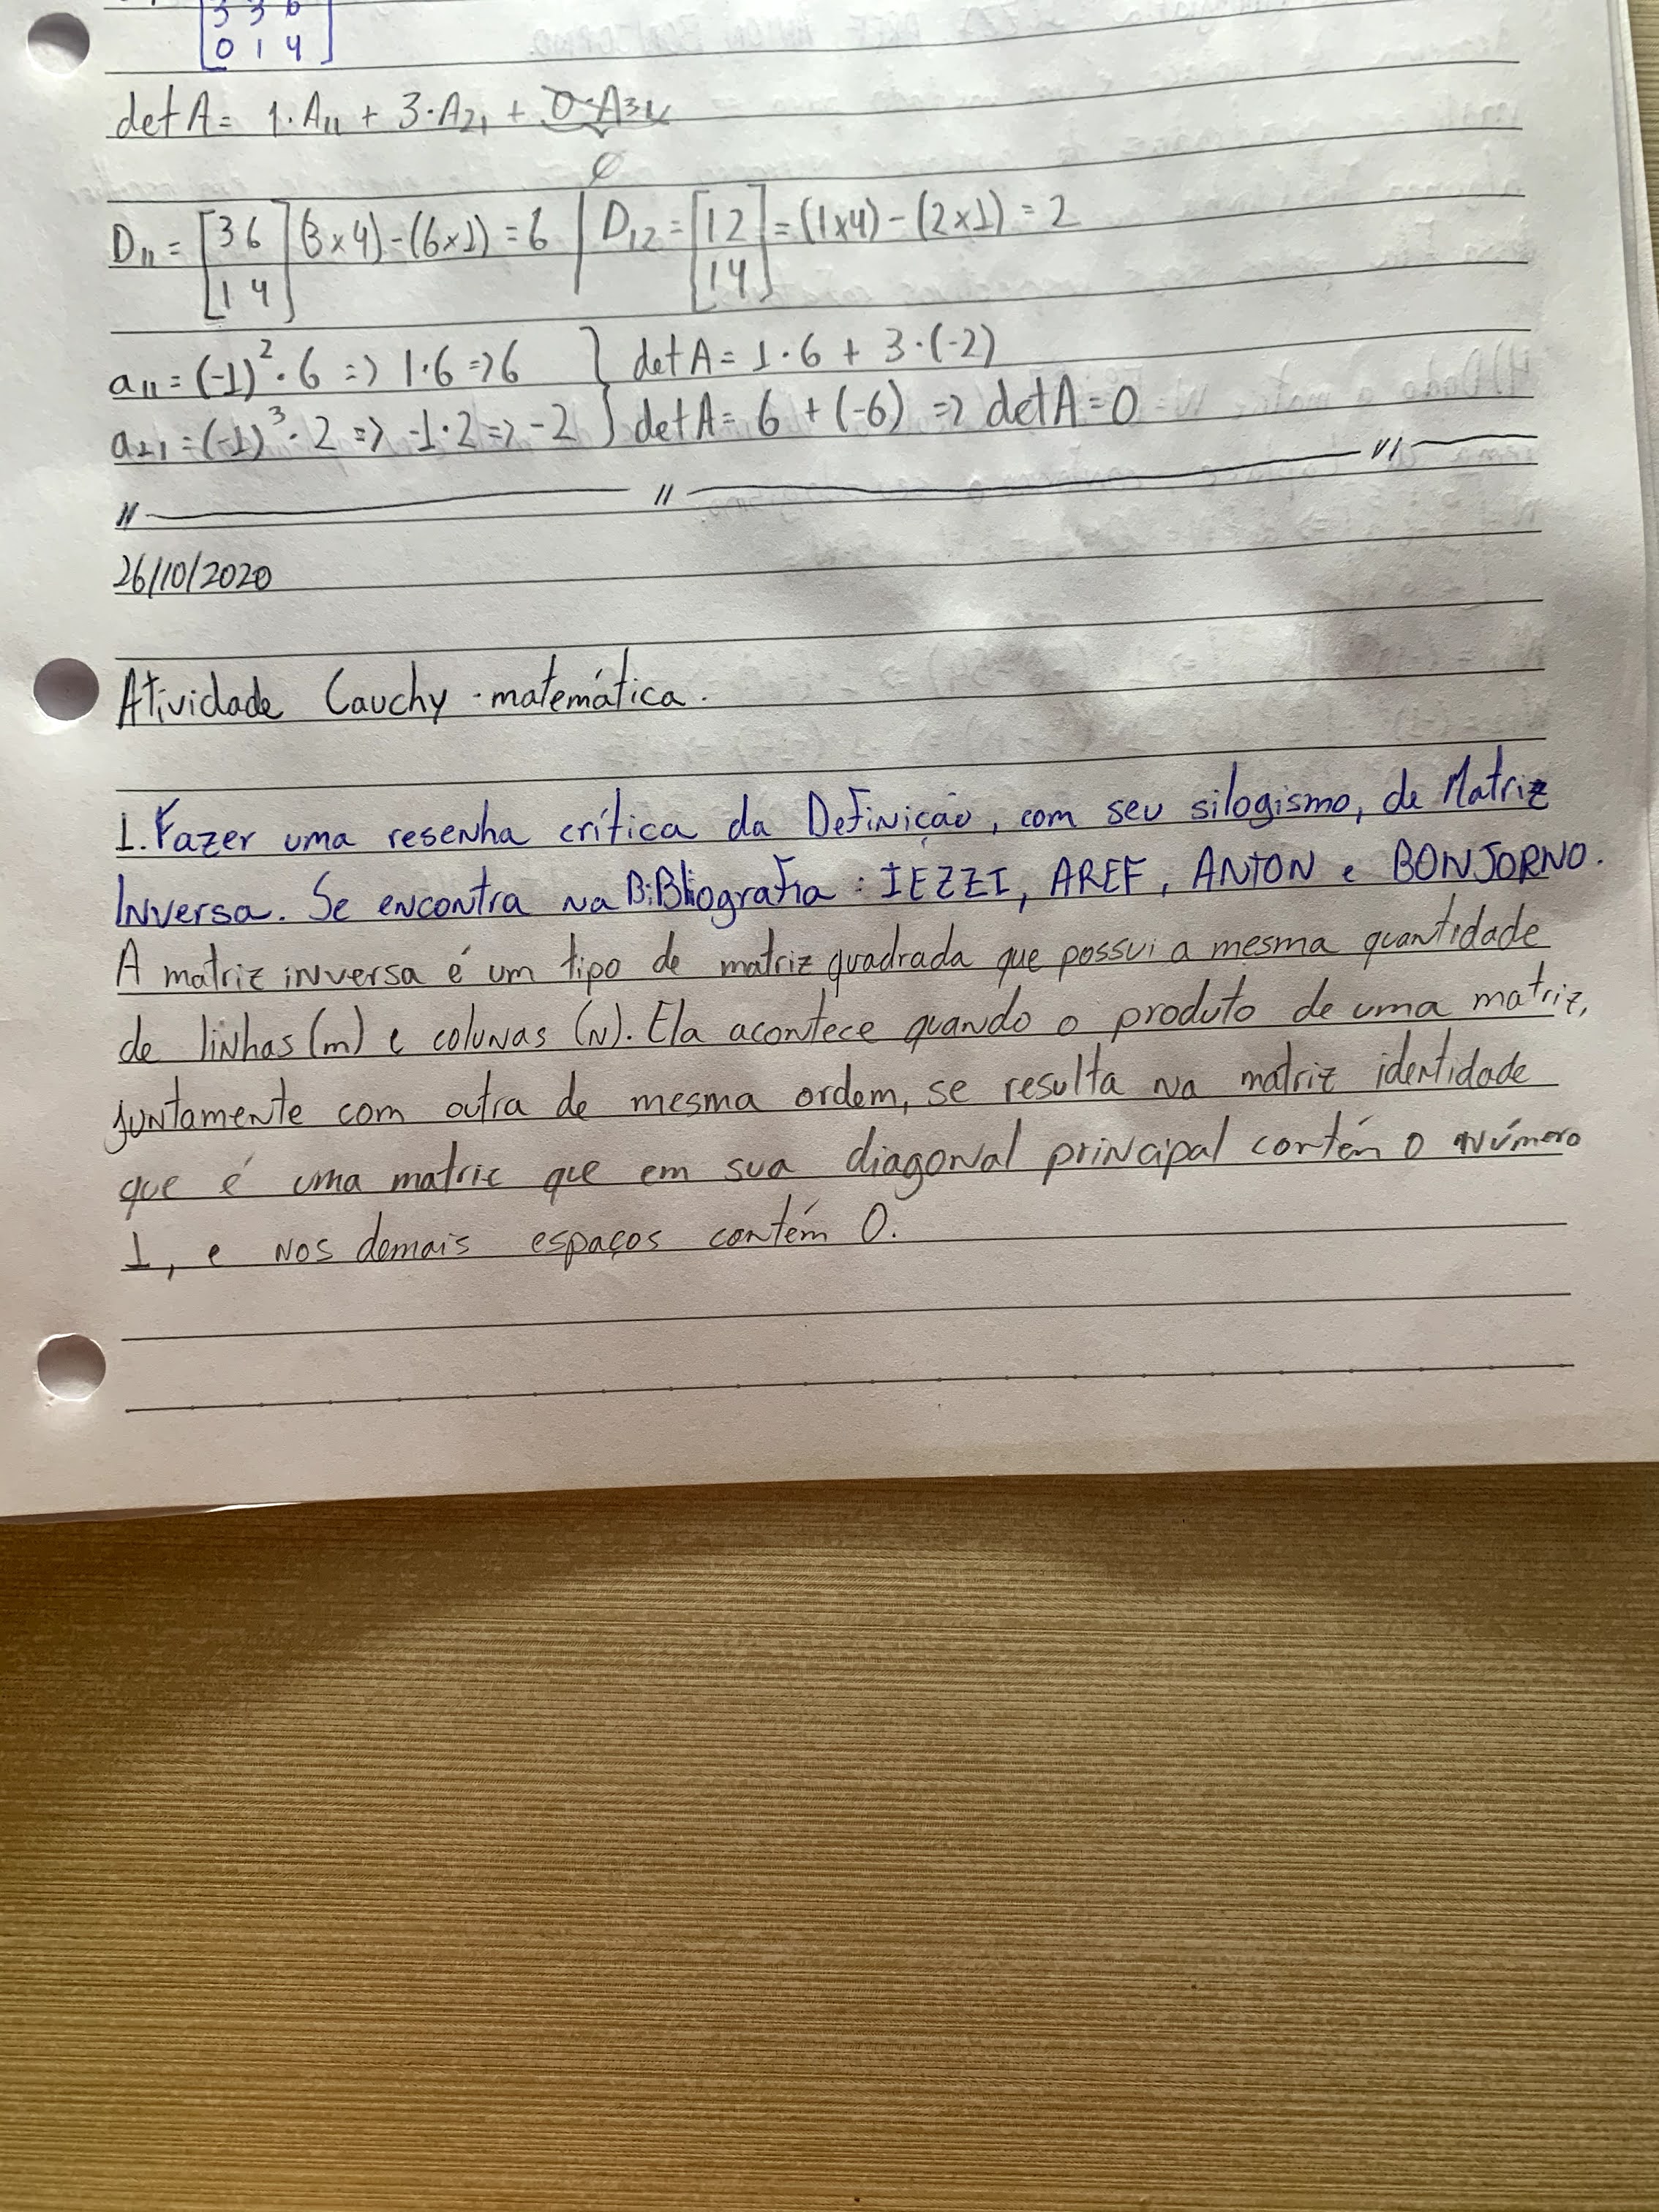 3 3 6
0 1 4
det A = 1·A11 + 3·A21 + 0·A31
0
D11 = [3 6] (3x4)-(6x1) = 6 | D12 = [1 2] = (1x4) - (2x1) = 2
[1 4] [1 4]
a11 = (-1)² · 6 => 1·6 => 6 } det A = 1·6 + 3·(-2)
a21 = (-1)³ · 2 => -1·2 => -2 } det A = 6 + (-6) => det A = 0
// // //
26/10/2020
Atividade Cauchy - matemática.
1. Fazer uma resenha crítica da Definição, com seu silogismo, de Matriz
Inversa. Se encontra na BiBliografia: IEZZI, AREF, ANTON e BONJORNO.
A matriz inversa é um tipo de matriz quadrada que possui a mesma quantidade
de linhas (m) e colunas (N). Ela acontece quando o produto de uma matriz,
juntamente com outra de mesma ordem, se resulta na matriz identidade
que é uma matriz que em sua diagonal principal contém o número
1, e nos demais espaços contém 0.